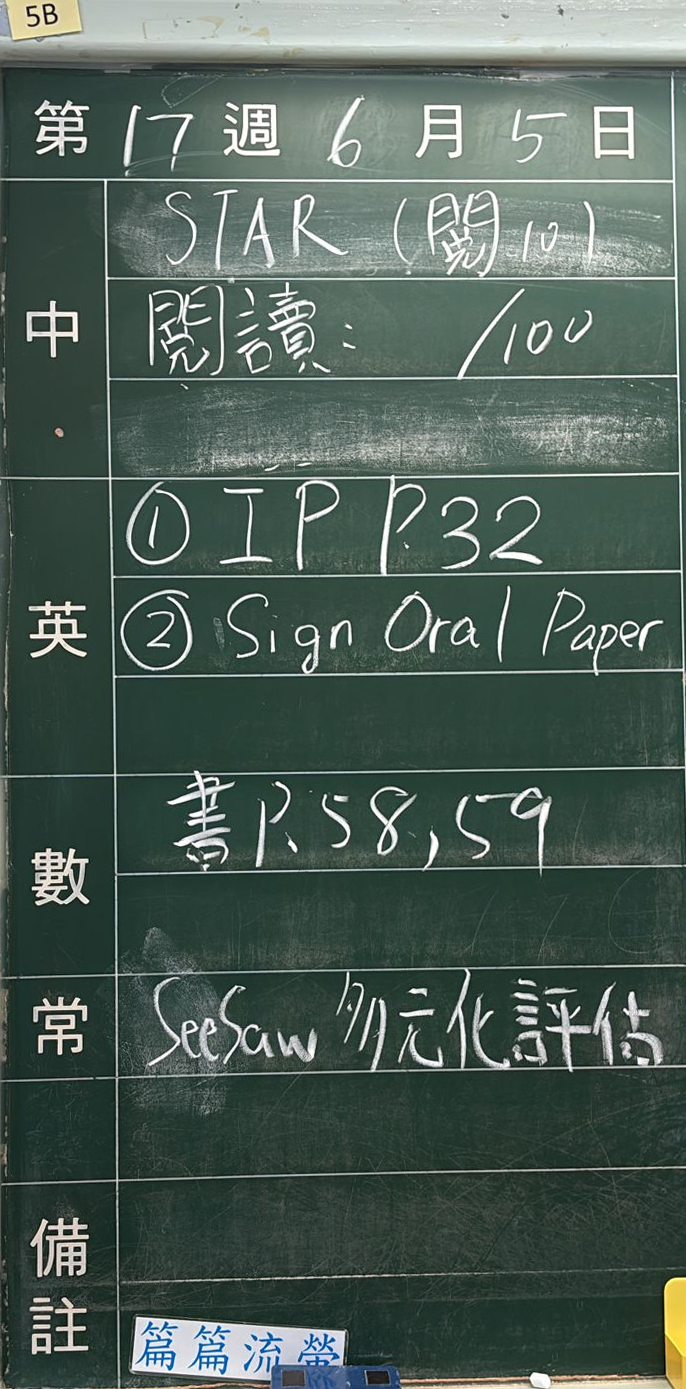 5B
第 17 週 6 月 5 日
中
STAR (閱10)
閱讀: /100
英
① IP P.32
② Sign Oral Paper
數
書 P.58,59
常
SeeSaw 多元化評估
備註
篇篇流螢